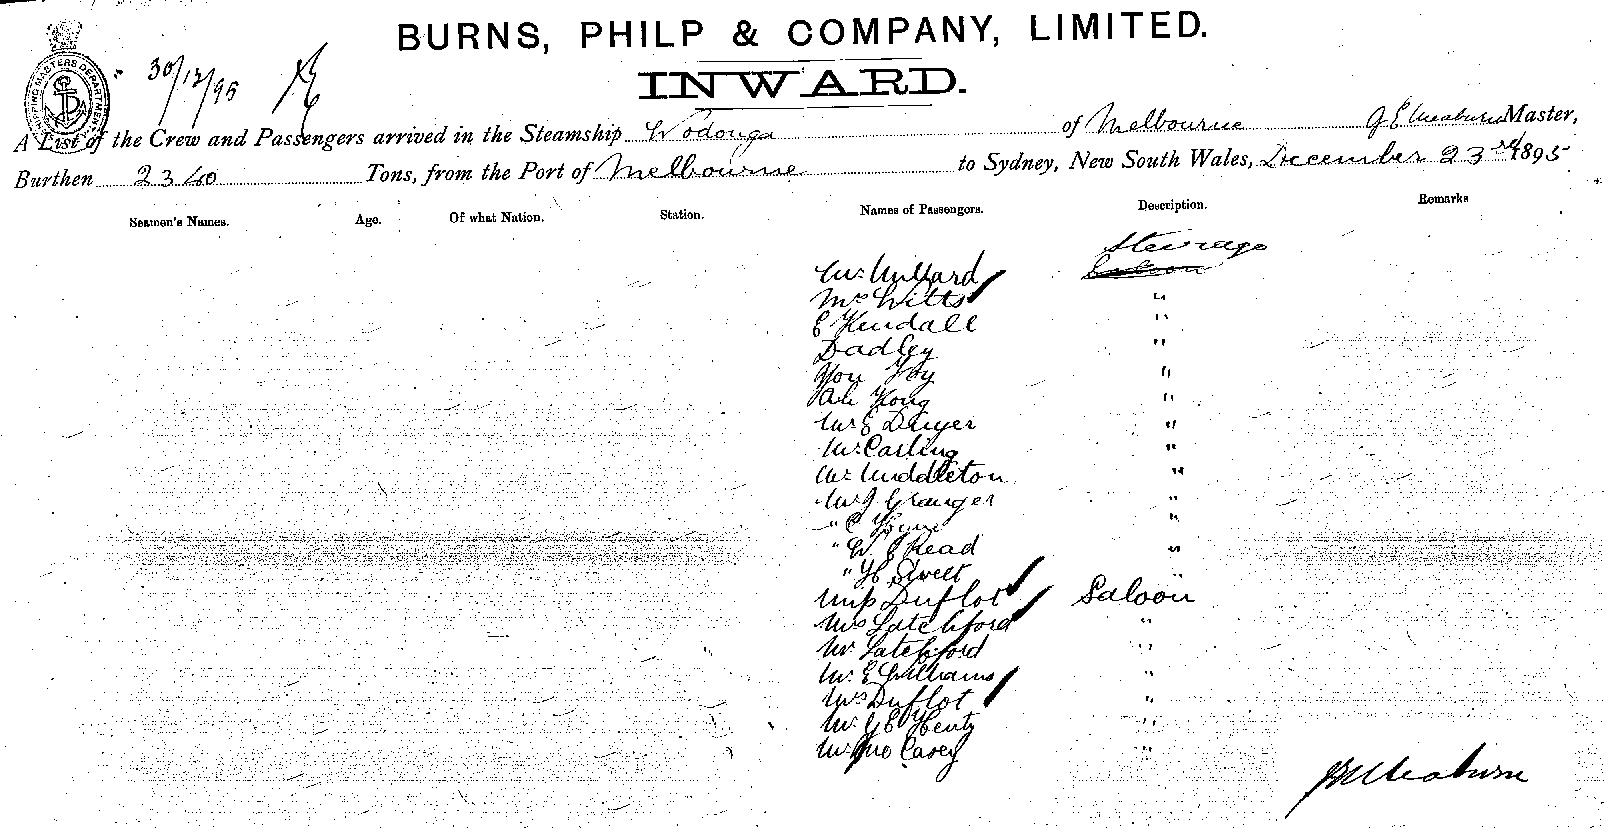 BURNS, PHILP & COMPANY, LIMITED.
INWARD.
SHIPPING MASTERS DEPARTMENT
30/12/95
A List of the Crew and Passengers arrived in the Steamship Wodonga of Melbourne Master,
Burthen 2340 Tons, from the Port of Melbourne to Sydney, New South Wales, December 23rd 1895
Seamen's Names. Age. Of what Nation. Station. Names of Passengers. Description. Remarks
Steerage
Mr Millard Saloon
Mrs Witts "
E Kendall "
Dadley "
You Hoy "
Ah Kong "
Mr E Dwyer "
Mr Carling "
Mr Middleton "
Mr J Granger "
" C "
" W E Read "
" H Swett
Miss Duflot Saloon
Mrs Latchford "
Mr Latchford "
Mr E Williams "
Mrs Duflot "
Mr "
Mr Jno Carey "